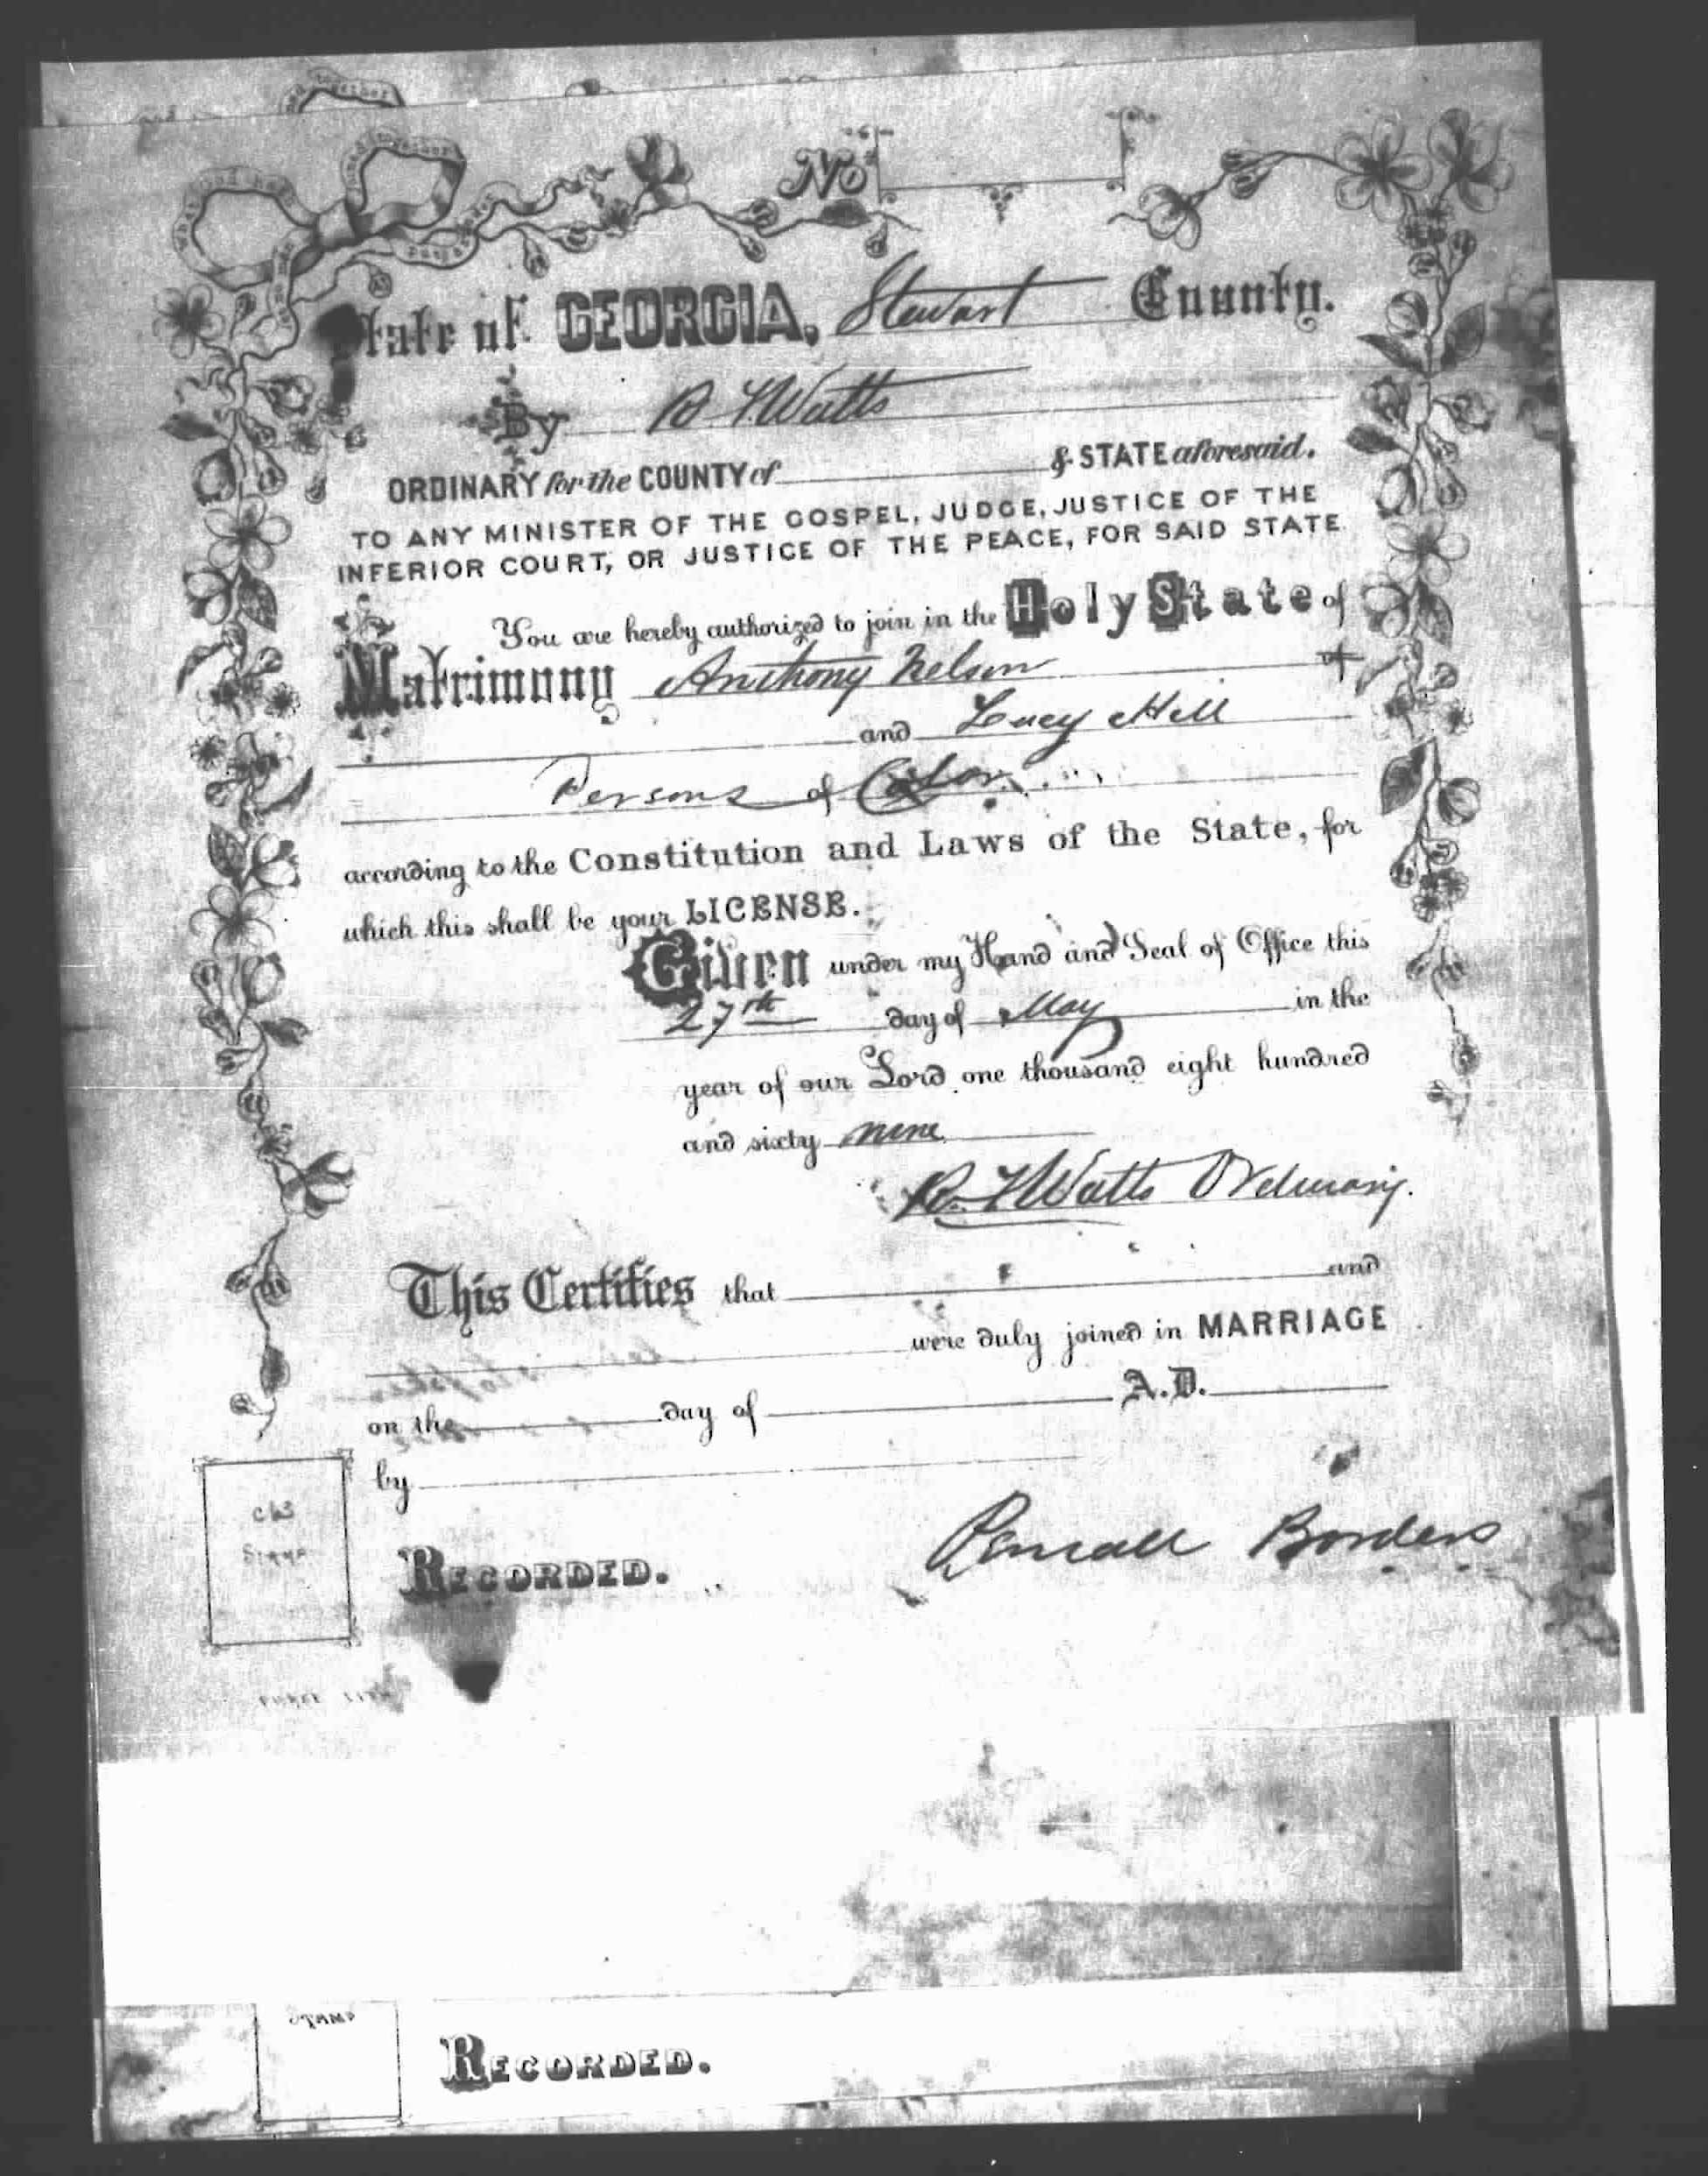 No
State of GEORGIA, Stewart County.
By R. F. Watts
ORDINARY for the COUNTY of & STATE aforesaid.
TO ANY MINISTER OF THE GOSPEL, JUDGE, JUSTICE OF THE
INFERIOR COURT, OR JUSTICE OF THE PEACE, FOR SAID STATE.
You are hereby authorized to join in the Holy State of
Matrimony Anthony Nelson of
and Lucy Hill
Persons of Color
according to the Constitution and Laws of the State, for
which this shall be your LICENSE.
Given under my Hand and Seal of Office this
27th day of May in the
year of our Lord one thousand eight hundred
and sixty nine
R. F. Watts Ordinary.
This Certifies that and
were duly joined in MARRIAGE
on the day of A.D.
by
STAMP
Borders
RECORDED.
STAMP
RECORDED.